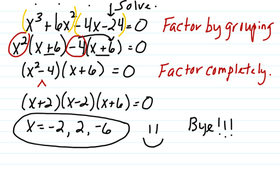 Solve.
(x³ + 6x²)(-4x - 24) = 0 Factor by grouping
x²(x + 6) - 4(x + 6) = 0
(x² - 4)(x + 6) = 0 Factor completely.
(x + 2)(x - 2)(x + 6) = 0
x = -2, 2, -6 Bye!!!